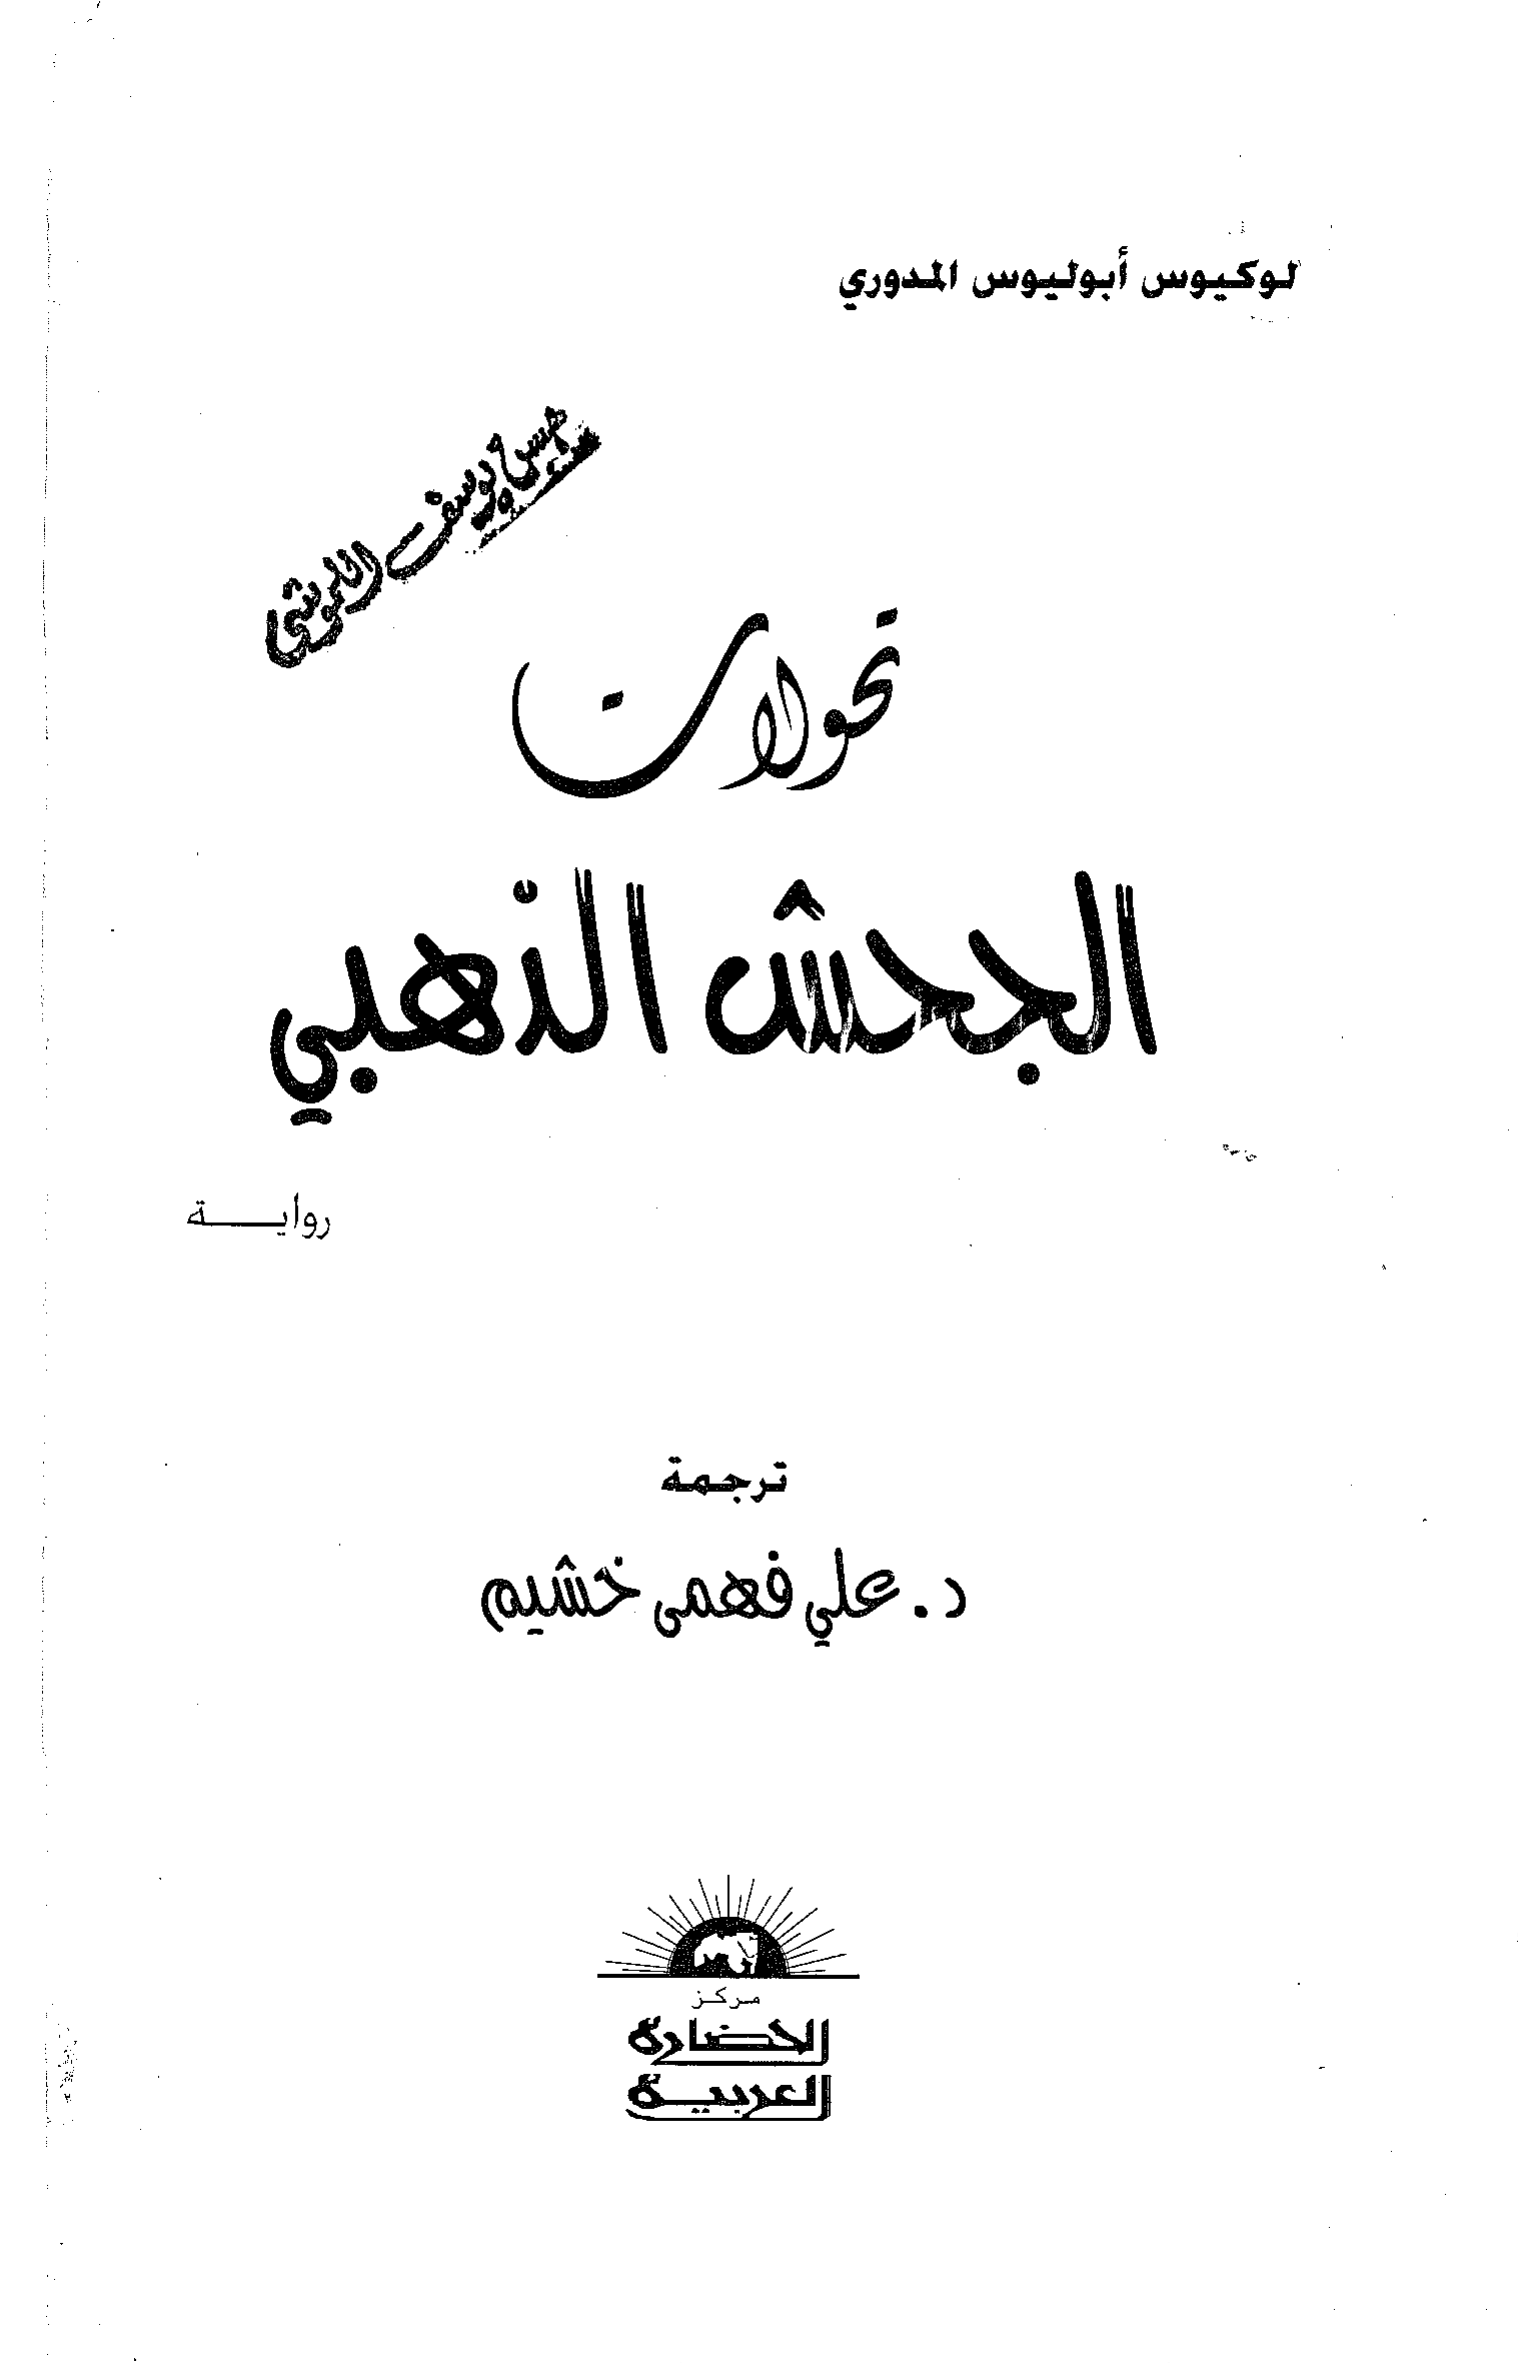 لوكيوس أبوليوس المدوري
يوسف
تحولات
الجحش الذهبي
روايـــــة
ترجمة
د. علي فهمى خشيم
مركز
الحضارة
العربية